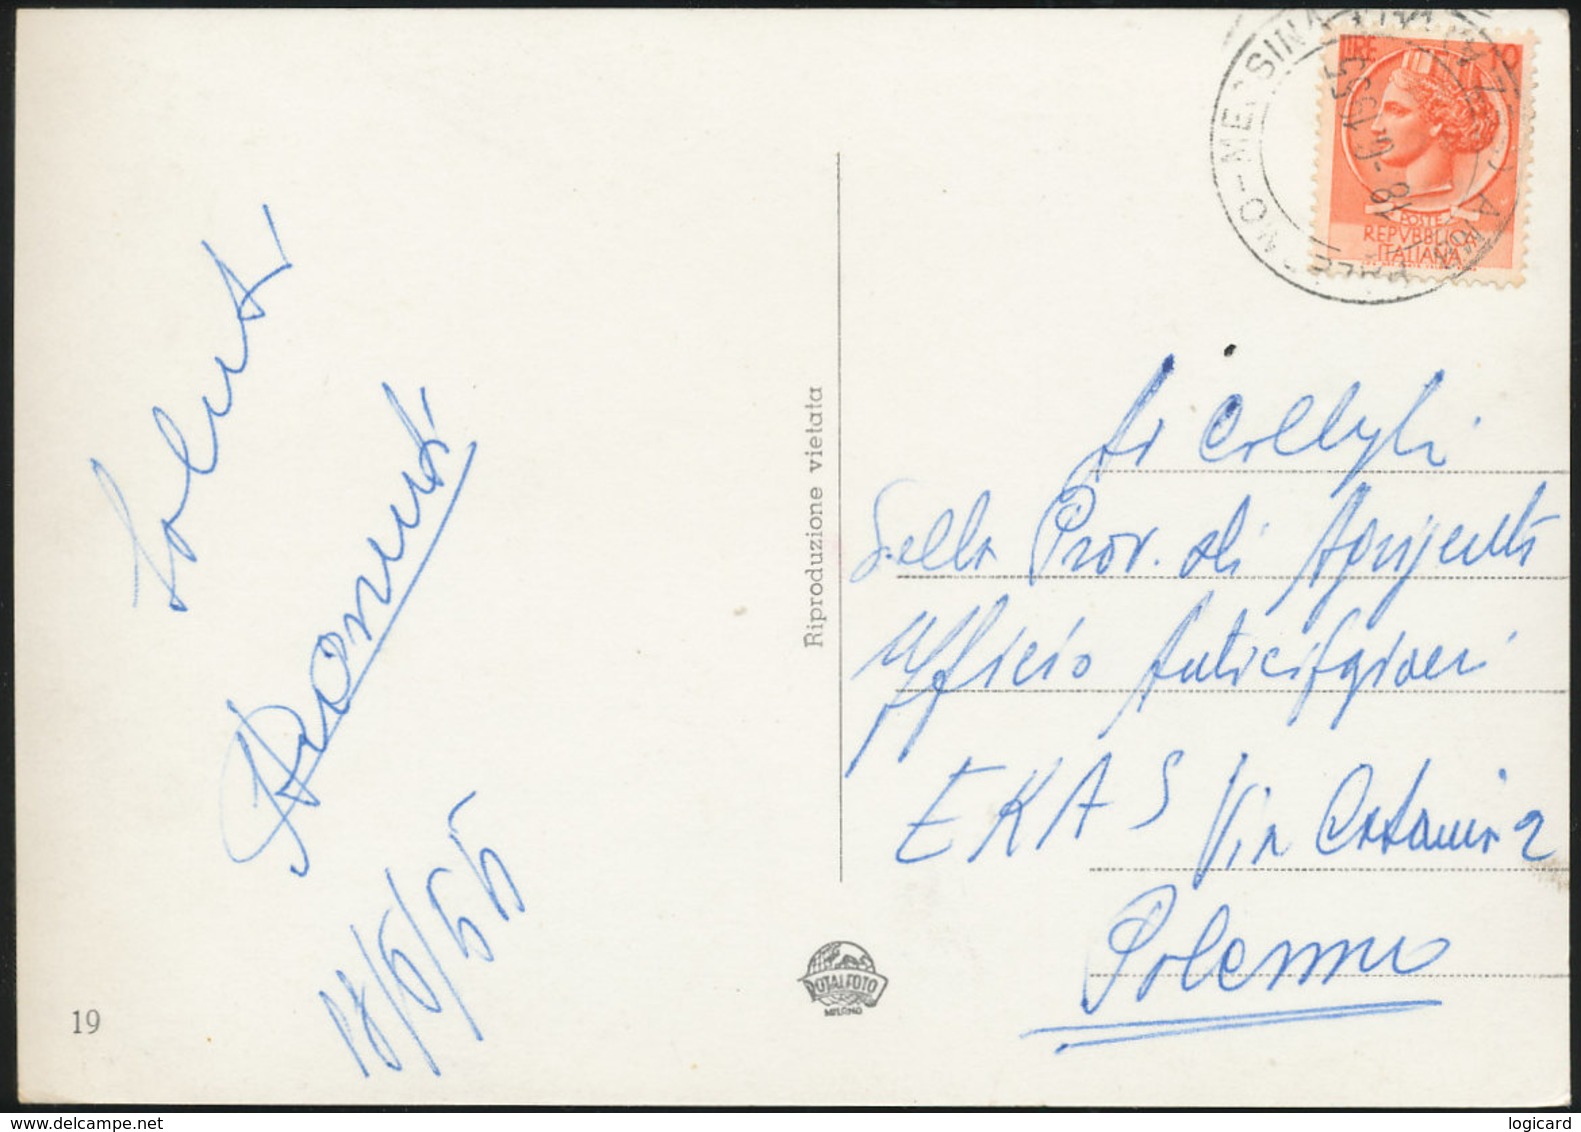 Saluti
18/6/55
19
Riproduzione vietata
ROTALFOTO
MILANO
LIRE 10
POSTE
REPVBBLICA
ITALIANA
PALERMO-MESSINA
18-6 1955
Ai Colleghi
della Prov. di Agrigento
Ufficio Antincendi
EKAS Via Catania 2
Palermo
www.delcampe.net
logicard